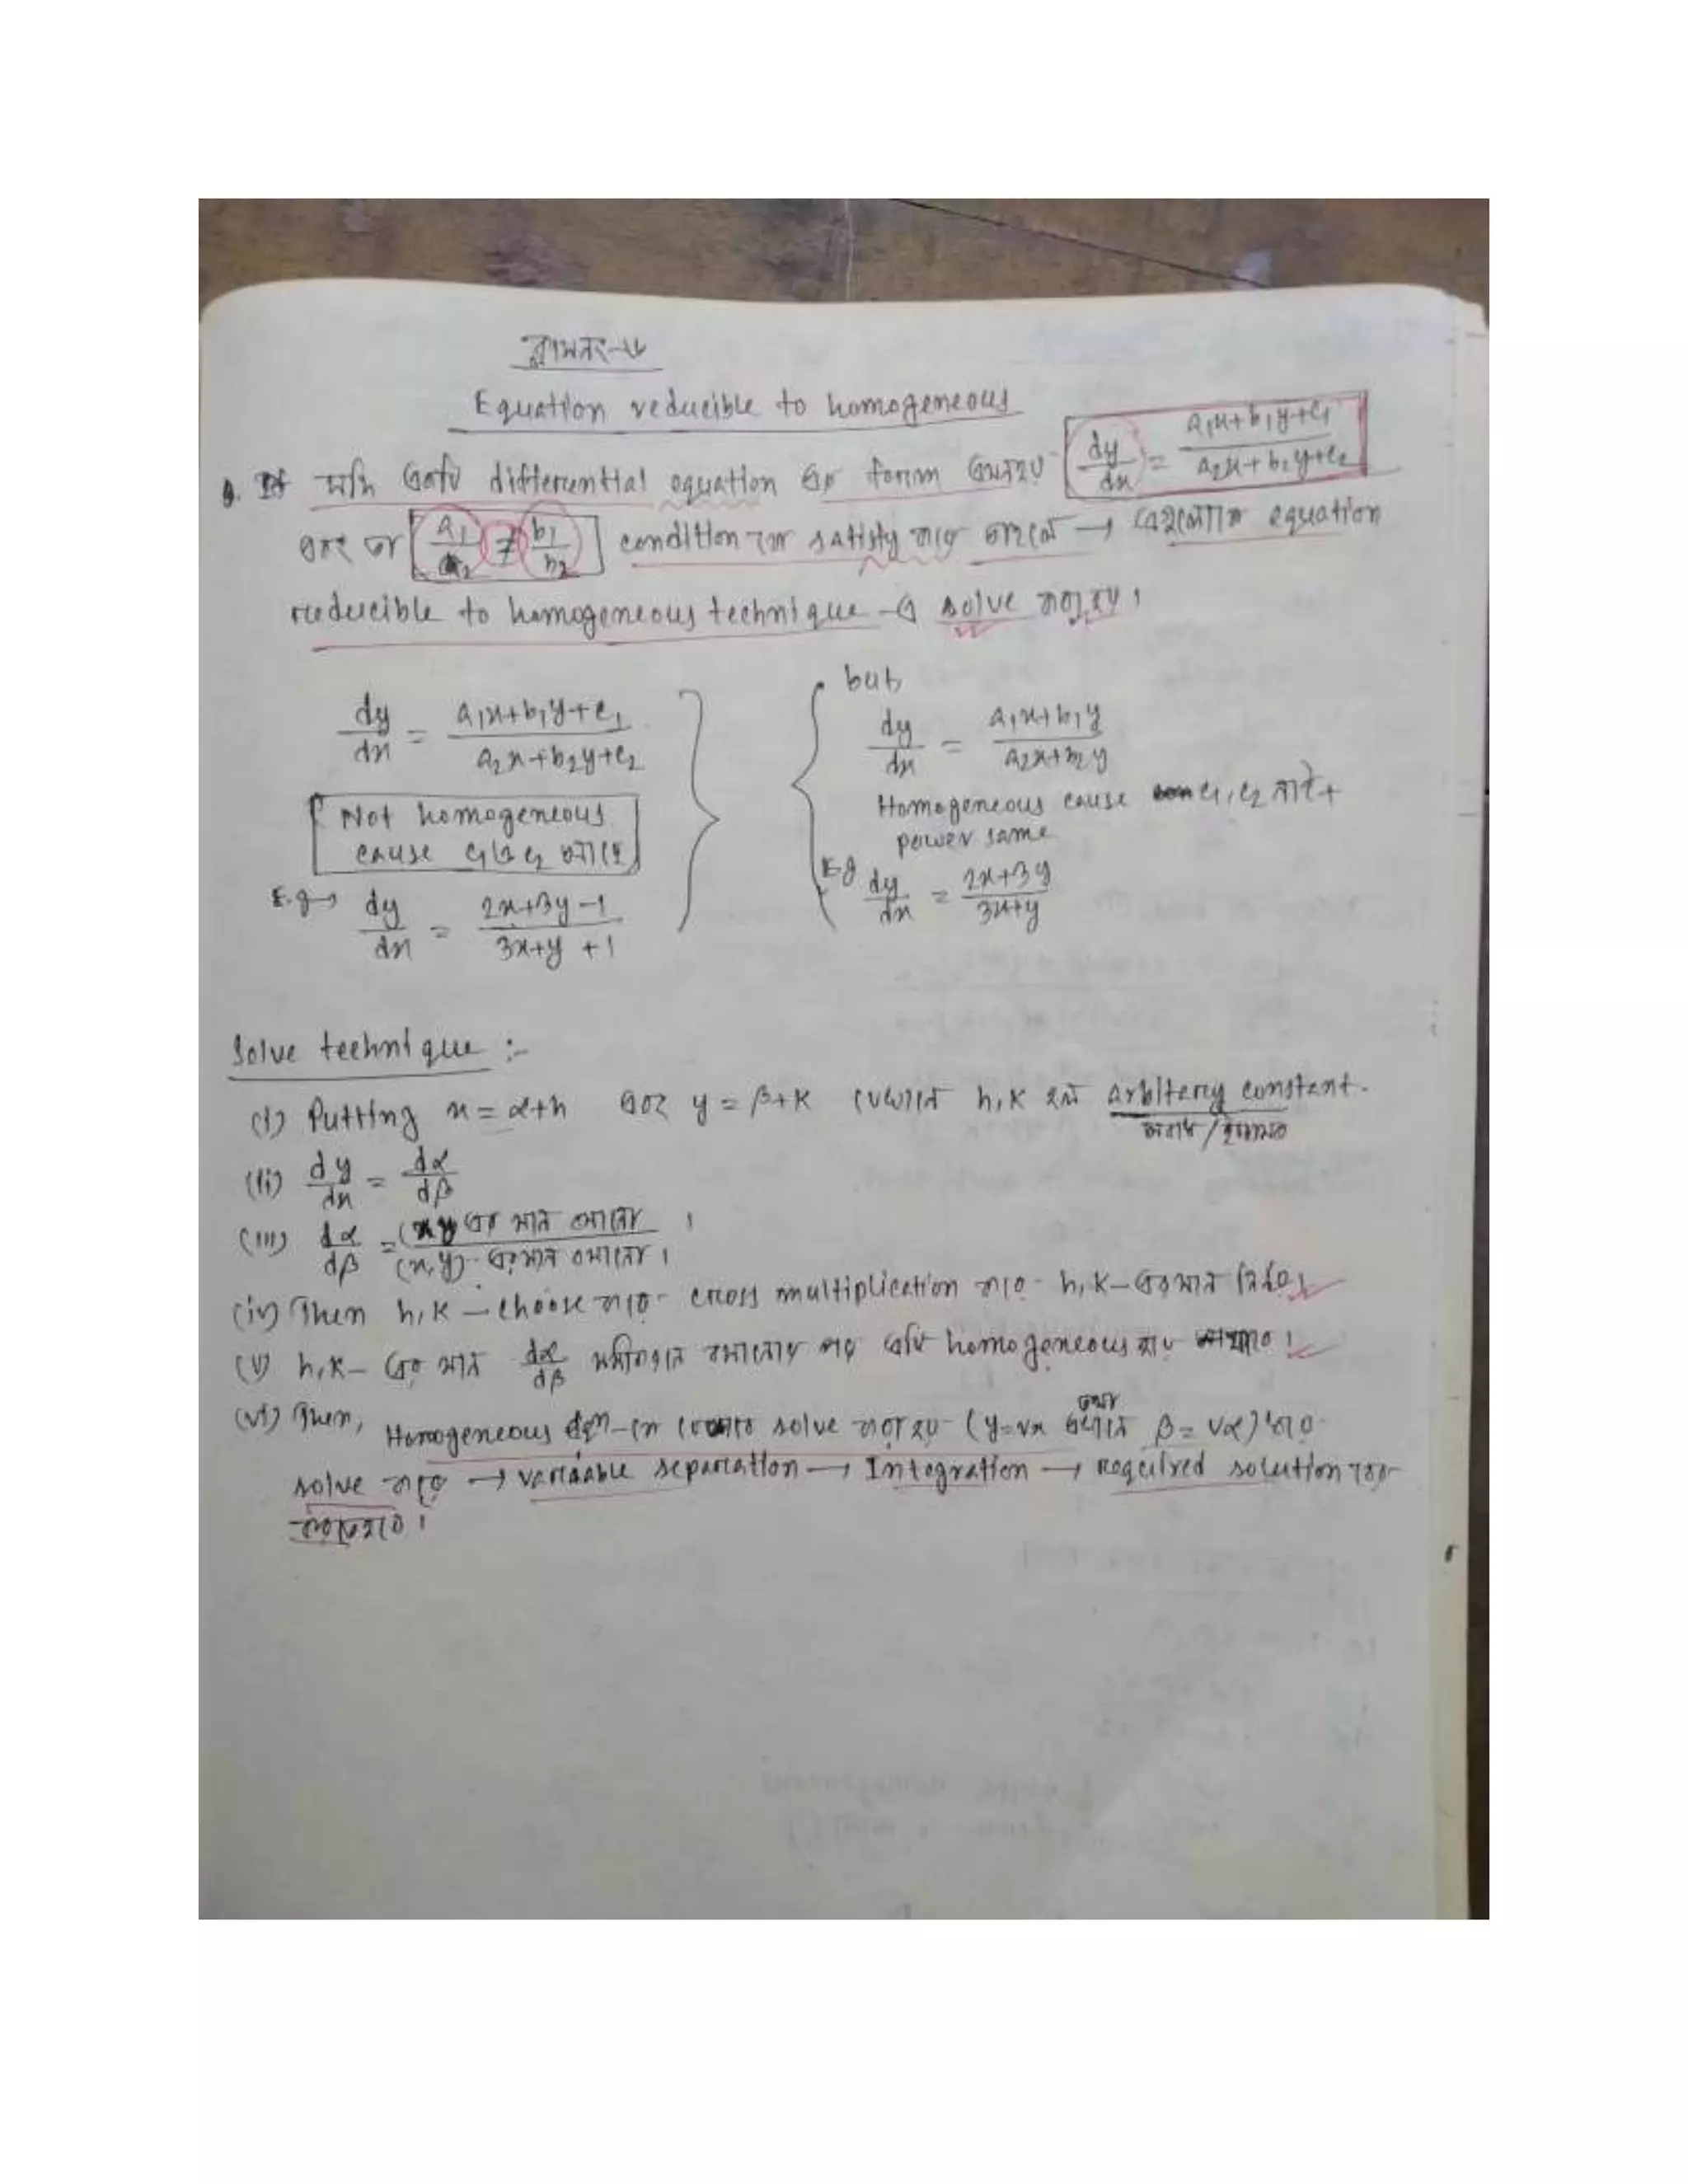 ক্লাসনং-৬
Equation reducible to homogeneous
যদি একটি differential equation এর form এমনহয় dy/dx = a₁x+b₁y+c₁ / a₂x+b₂y+c₂
এবং তা a₁/a₂ ≠ b₁/b₂ condition কে satisfy করে তাহলে → equation
reducible to homogeneous technique -এ solve করা হয়।
dy/dx = a₁x+b₁y+c₁ / a₂x+b₂y+c₂
Not homogeneous
cause c₁ও c₂ আছে
E.g→ dy/dx = 2x+3y-1 / 3x+y+1
but
dy/dx = a₁x+b₁y / a₂x+b₂y
Homogeneous cause c₁, c₂ নাই+
power same
Eg dy/dx = 2x+3y / 3x+y
Solve technique :-
(i) Putting x = α+h এবং y = β+k যেখানে h, k হলো arbitery constant.
(ii) dy/dx = dα/dβ
(iii) dα/dβ = (x y এর মান / (x, y)- এর মান
(iv) Then h, k – choose করে cross multiplication করে h, k- এর মান নির্ণয়
(v) h, k- এর মান dα/dβ সমীকরণে বসানোর পর একটি homogeneous
(vi) Then, Homogeneous কে solve করা হয় (y=vx β = vα) করে
solve করে → variable separation → Integration → required solution বের
করতেহবে।